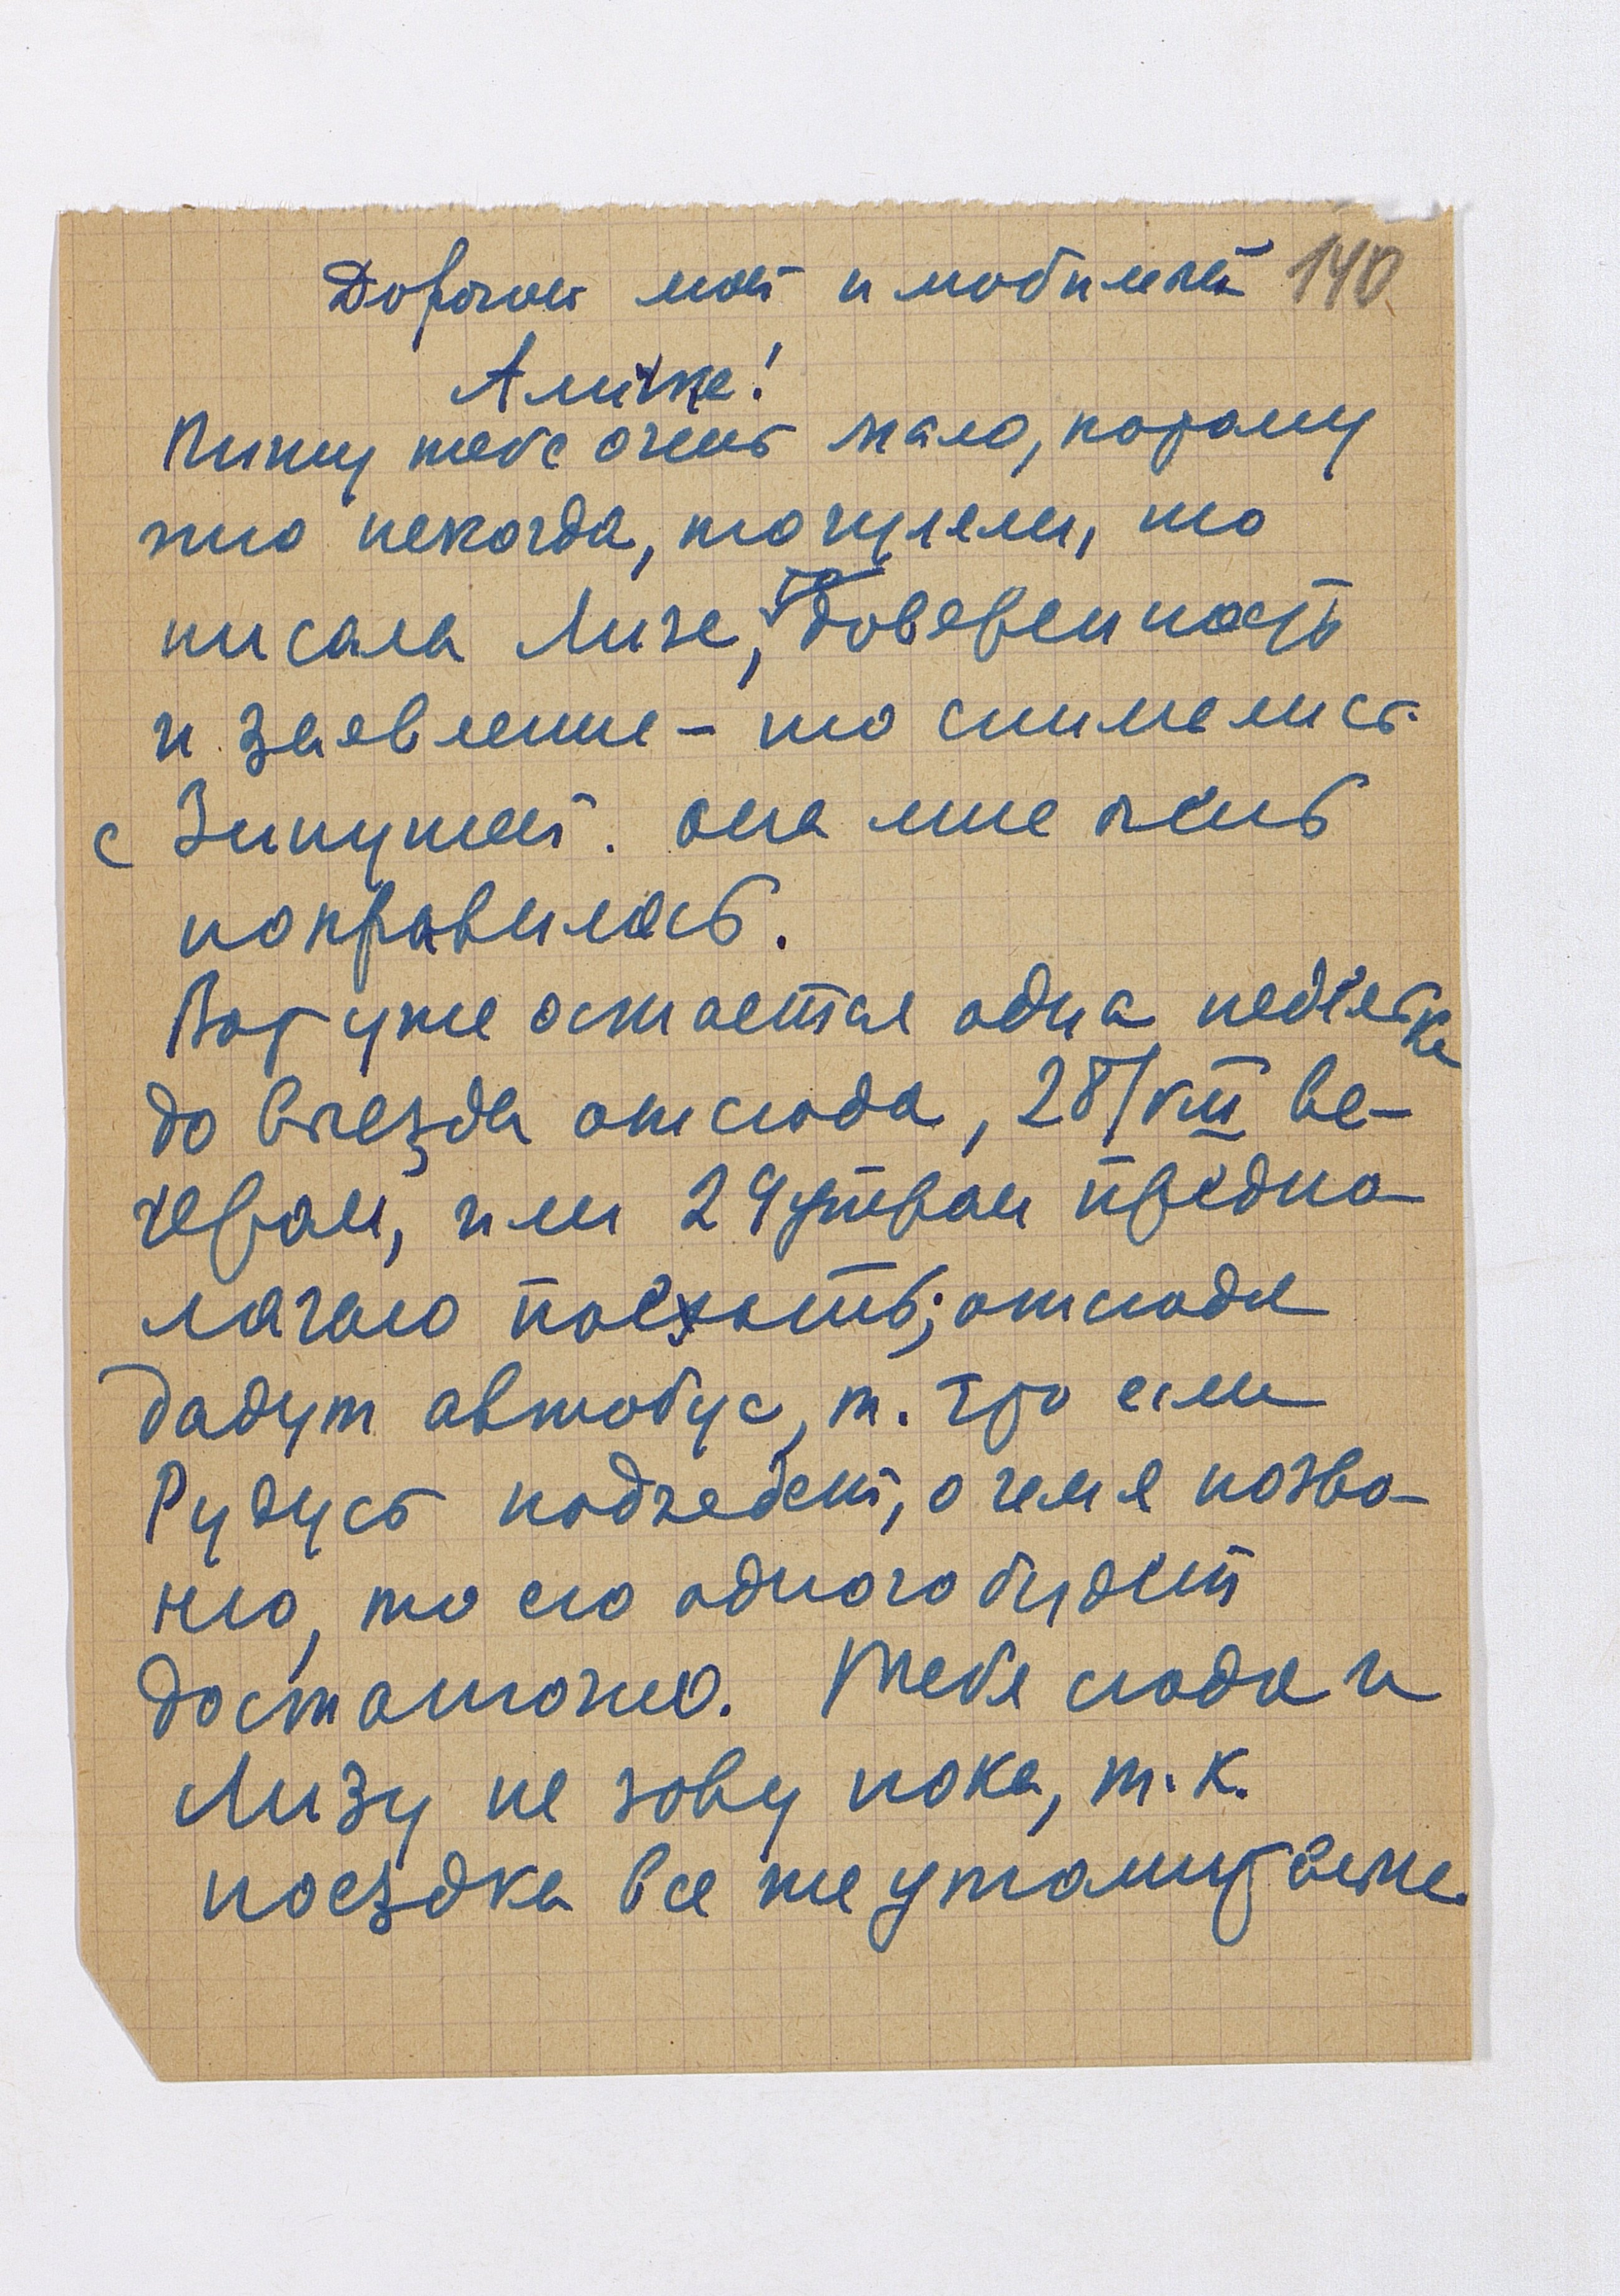 Дорогой мой и любимый 140
Аличке!
Пишу тебе очень мало, потому
что некогда, то гуляли, то
писала Лизе, то доверенность
и заявление – то снимались
с Зинушей. она мне очень
понравилась.
Вот уже остается одна неделька
до выезда отсюда, 28/VIII ве-
чером, или 29 утром предпо
лагаю поехать; отсюда
дадут автобус, т. что если
Рудусь подъедет, о чем я позво-
ню, то его одного будет
достаточно. Тебя сюда и
Лизу не зову пока, т.к.
поездка все же утомительна.